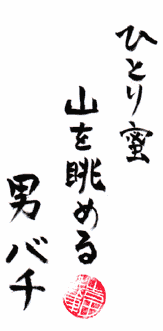 ひとり蜜
山を眺める
男バチ